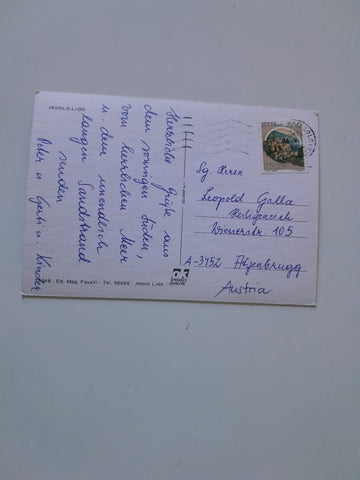 JESOLO LIDO
Herzliche Grüße aus
dem sonnigen Süden,
vom herrlichen Meer
u. dem unendlich
langen Sandstrand
senden
Peter u. Gerti u. Kinder
Ed. Mag. Favalli - Tel. 90666 - Jesolo Lido
Sg. Herrn
Leopold Galla
Heiligeneich
Wienerstr 105
A-3452 Atzenbrugg
Austria